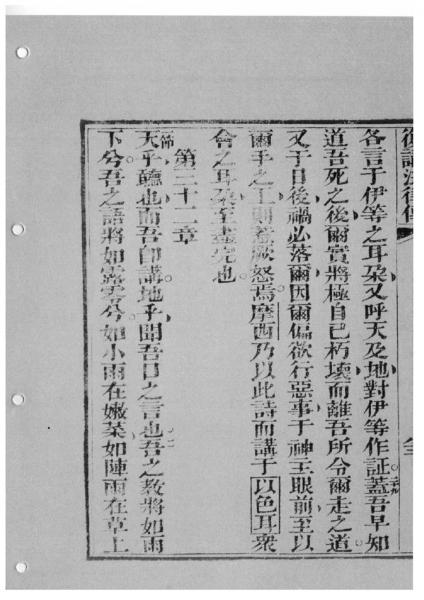 復講法律傳
各言于伊等之耳朶又呼天及地對伊等作証蓋吾早知
道吾死之後爾實將極自己朽壞而離吾所令爾走之道
又于日後禍必落爾因爾偏欲行惡事于神主眼前至以
爾手之工朝惹厥怒焉摩西乃以此詩而講于以色耳衆
會之耳朶至盡完也
第三十二章
天乎聽也而吾卽講地乎聞吾口之言也吾之教將如雨
下兮吾之語將如露雲兮如小雨在嫩菜如陣雨在草上